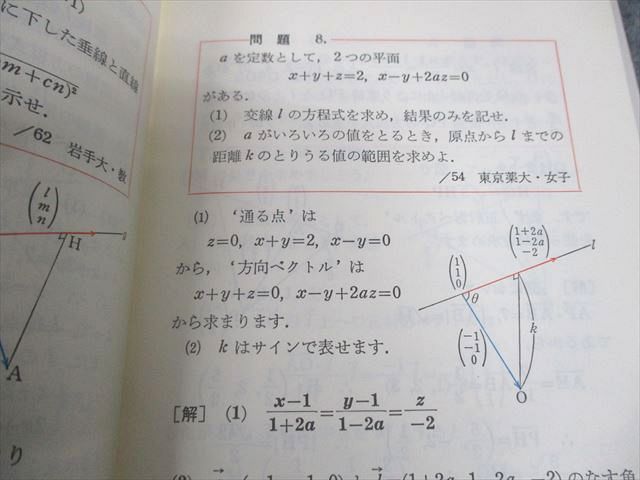 に下した垂線と直線
m+cn)²
示せ.
/62 岩手大・教
(l m n)
H
A
り
問題 8.
aを定数として, 2つの平面
x+y+z=2, x−y+2az=0
がある.
(1) 交線lの方程式を求め, 結果のみを記せ.
(2) aがいろいろの値をとるとき, 原点からlまでの
距離kのとりうる値の範囲を求めよ.
/54 東京薬大・女子
(1) ‘通る点’は
z=0, x+y=2, x−y=0
から, ‘方向ベクトル’は
x+y+z=0, x−y+2az=0
から求まります.
(2) kはサインで表せます.
(1+2a 1−2a −2)
l
(1 1 0)
θ
k
(−1 −1 0)
O
[解] (1) (x−1)/(1+2a)=(y−1)/(1−2a)=z/(−2)
のなす角